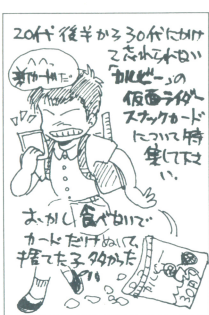 20代後半から30代にかけ
て忘れられない
「カルビー」の
仮面ライダー
スナックカード
について特
集して下さ
い。
新カードだ
おかし食べないで
カードだけぬいて、
捨てた子多かった